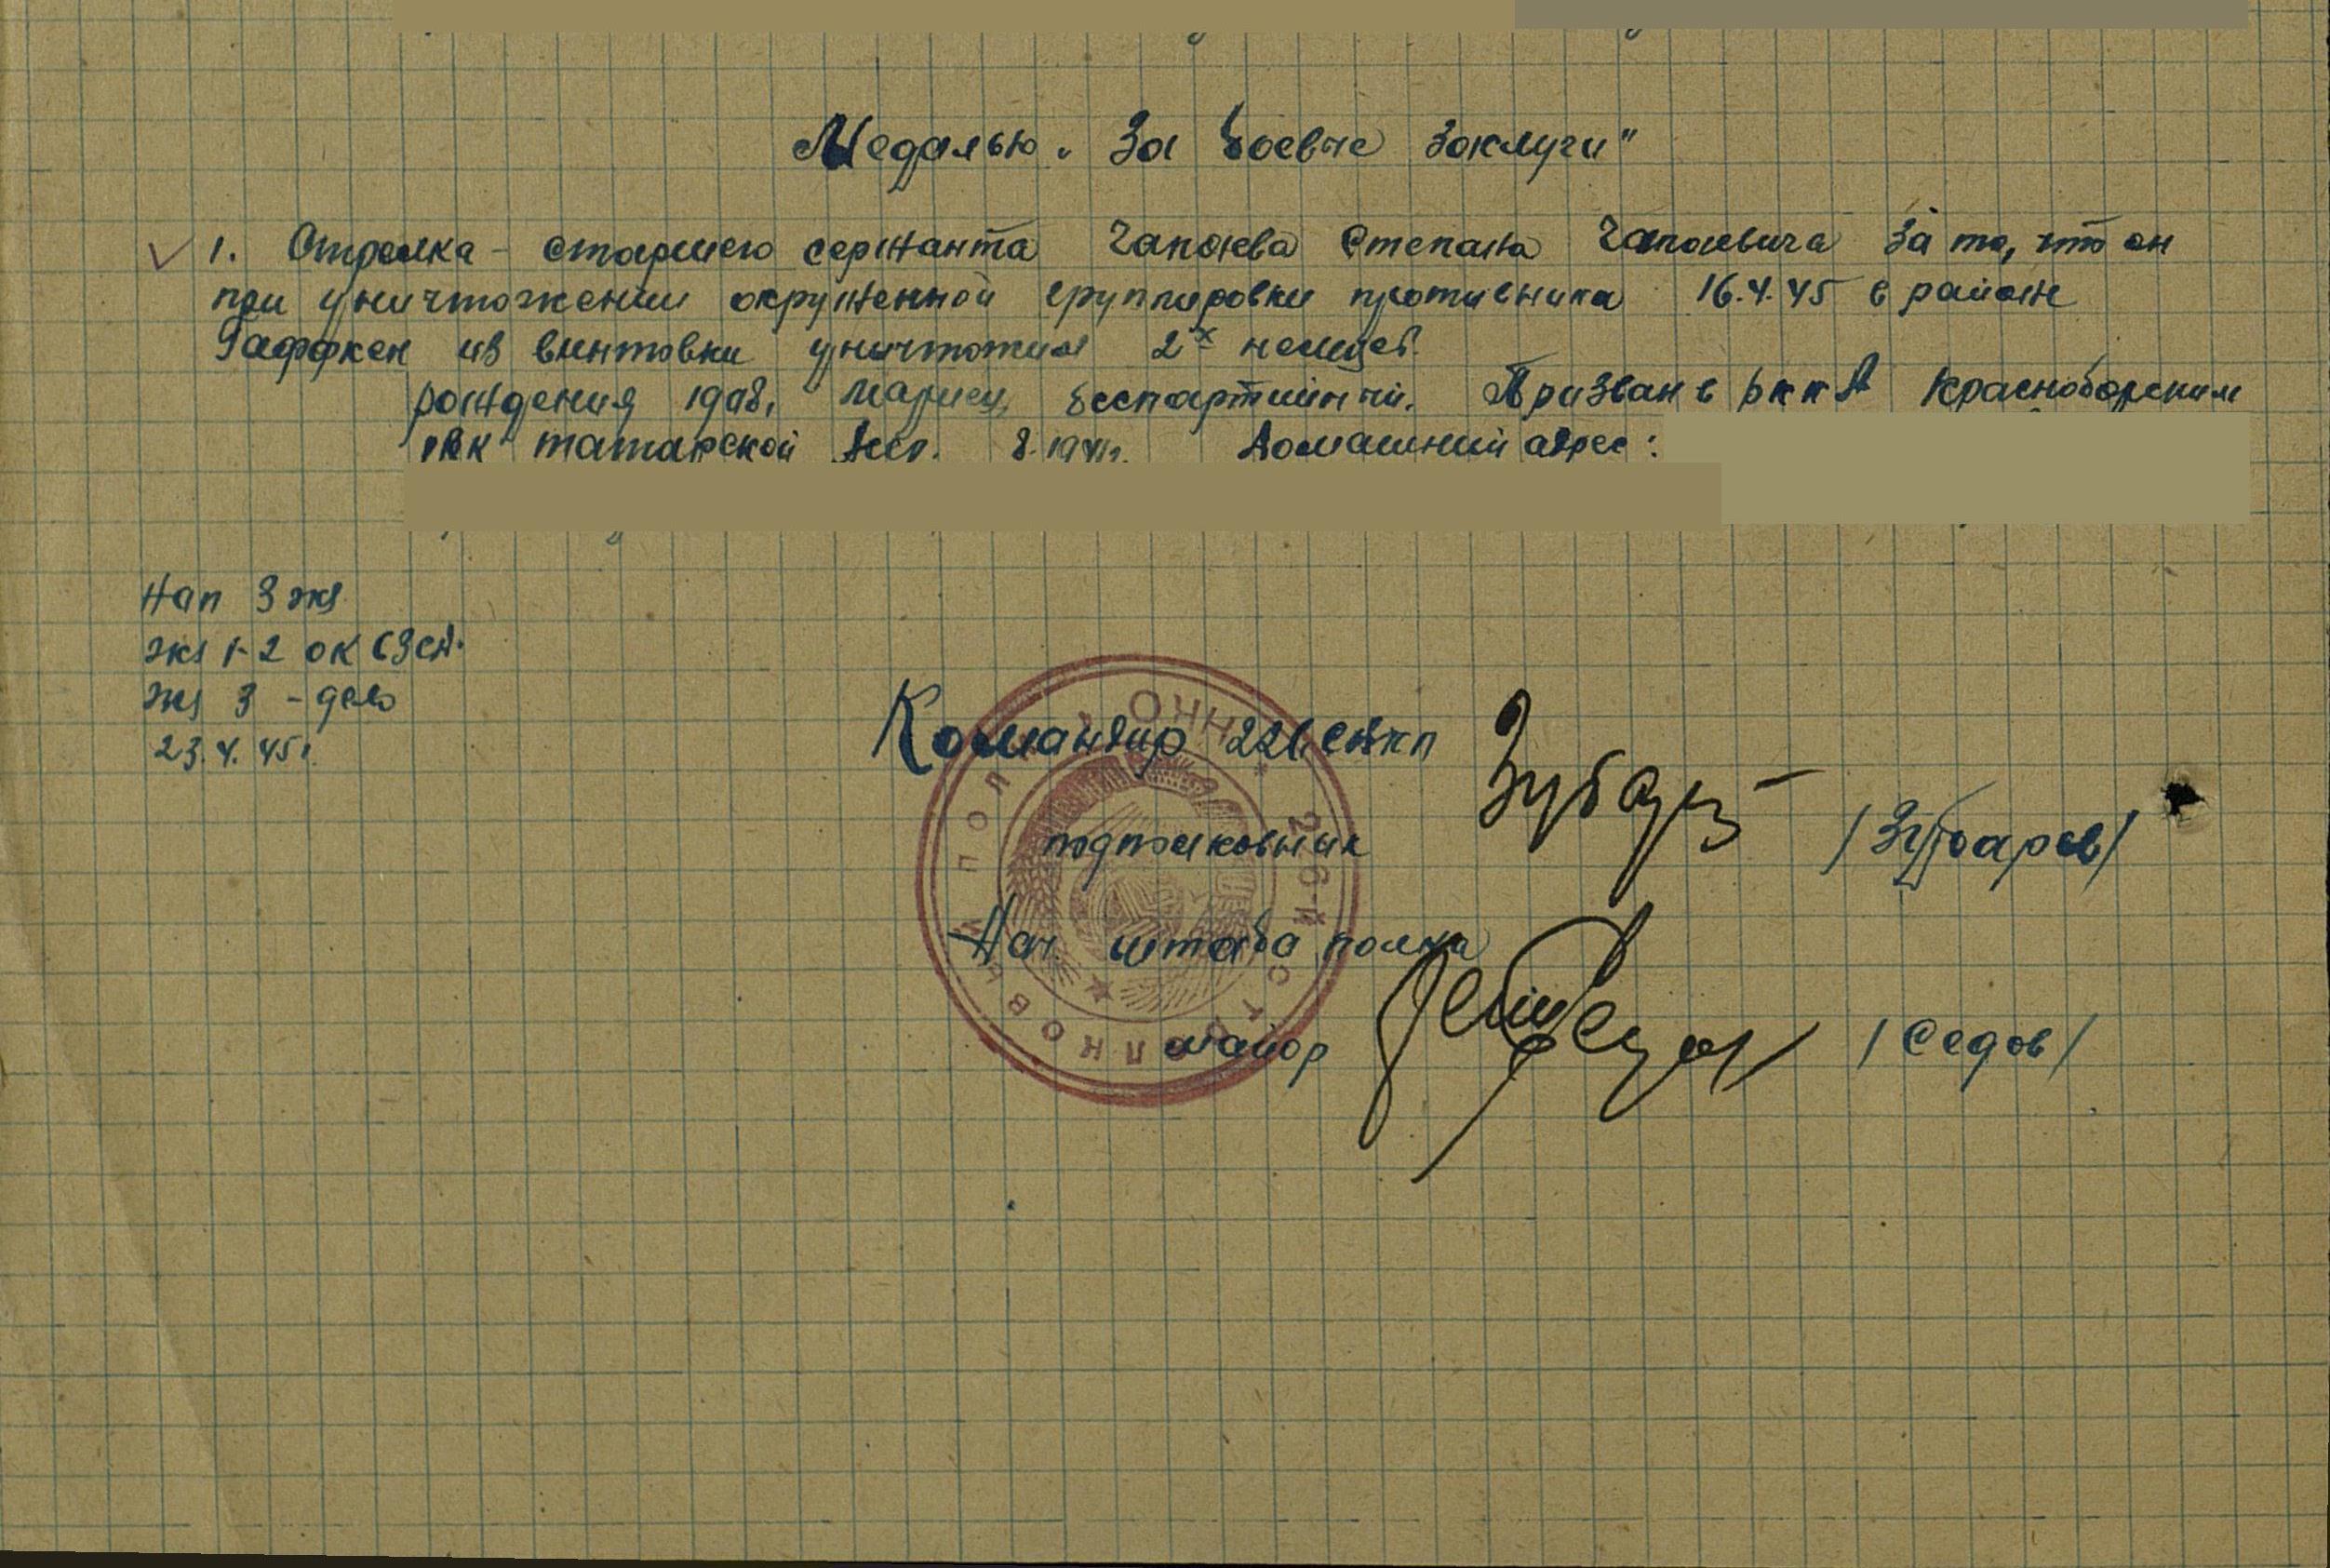 Медалью „За боевые заслуги"
1. Стрелка - старшего сержанта Чапаева Степана Чапаевича за то, что он
при уничтожении окруженной группировки противника 16.4.45 в районе
Гаффкен из винтовки уничтожил 2х немцев.
рождения 1908, мариец, беспартийный. Призван в РККА Красноборским
РВК татарской АССР. 8.1941г. Домашний адрес:
Нап 3 экз
экз 1-2 ОК 63 СД.
экз 3 - дело
23.4.45г.
Командир 226 СЗКП
подполковник
Зубар /Зубарев/
Нач. штаба полка
майор
Седов /Седов/
* НКО * 226-й СТРЕЛКОВЫЙ ПОЛК